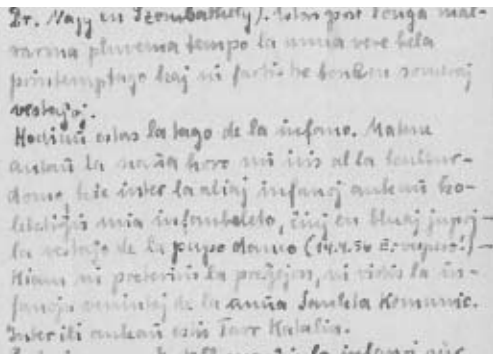 Dr. Nagy en Szombathely). Estas post longa mal-
varma pluvema tempo la unua vere bela
printemptago kaj ni jam en someraj
vestaĵoj.
Hodiaŭ estas la tago de la infano. Matene
antaŭ la naŭa horo mi iris al la kultur-
domo, kie inter la aliaj infanoj ankaŭ ko-
lektiĝis mia infanbaleto, ĉiuj en bluaj jupoj -
la vestaĵo de la pupo danco (14.4.56
Kiam ni preteriris la preĝejon, ni vidis la in-
fanojn venintaj de la unua Sankta Komunio.
Inter ili ankaŭ estis Tarr Katalin.
la infanoj